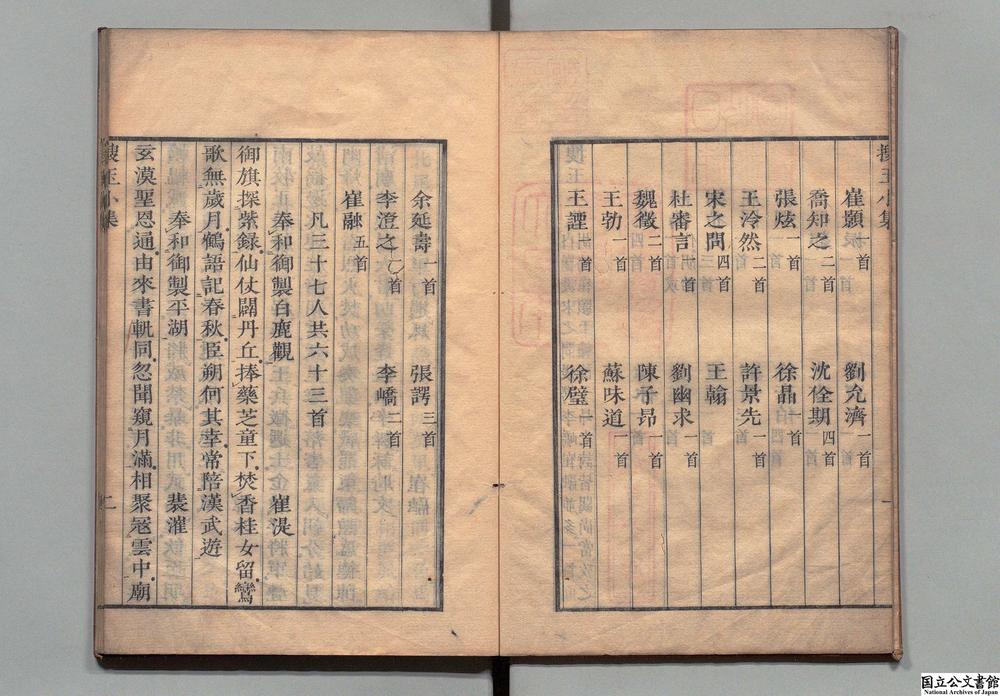 搜玉小集
一
崔顥一首 劉允濟一首
喬知之二首 沈佺期四首
張炫一首 徐晶一首
王泠然二首 許景先一首
宋之問四首 王翰
杜審言一首 劉幽求一首
魏徵二首 陳子昂一首
王勃一首 蘇味道一首
王諲一首 徐璧一首
余延壽一首 張諤三首
李澄之一首 李嶠二首
崔融五首
凡三十七人共六十三首
奉和御製白鹿觀 崔湜
御旗探紫籙仙仗闢丹丘捧藥芝童下焚香桂女留鸞
歌無歲月鶴語記春秋臣朔何其幸常陪漢武遊
奉和御製平湖 裴漼
玄漠聖恩通由來書軌同忽聞窺月滿相聚寇雲中廟
搜玉小集
二
国立公文書館
National Archives of Japan